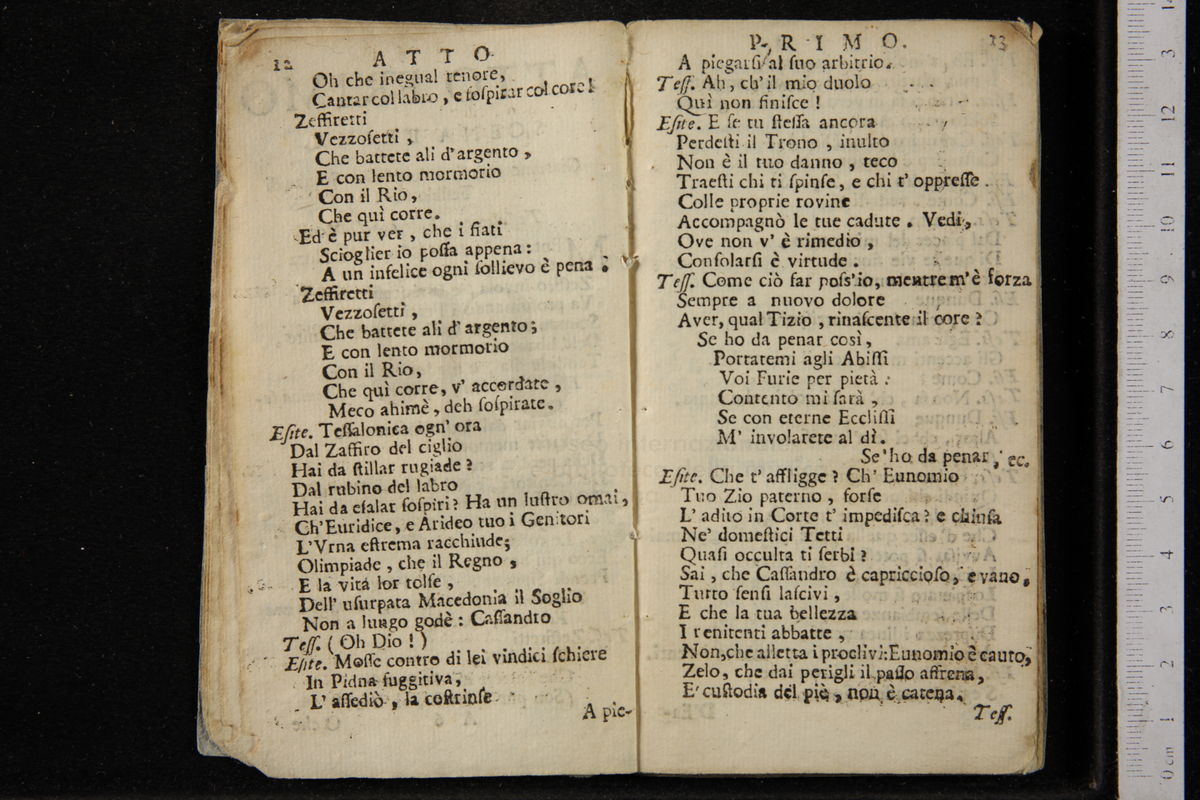 12 ATTO
Oh che inegual tenore,
Cantar col labro, e ſoſpirar col core!
Zeffiretti
Vezzoſetti,
Che battete ali d'argento,
E con lento mormorio
Con il Rio,
Che quì corre.
Ed è pur ver, che i fiati
Scioglier io poſſa appena:
A un infelice ogni ſollievo è pena.
Zeffiretti
Vezzoſetti,
Che battete ali d'argento;
E con lento mormorio
Con il Rio,
Che quì corre, v'accordate,
Meco ahimè, deh ſoſpirate.
Efite. Teſſalonica ogn'ora
Dal Zaffiro del ciglio
Hai da ſtillar rugiade?
Dal rubino del labro
Hai da eſalar ſoſpiri? Ha un luſtro omai,
Ch'Euridice, e Arideo tuo i Genitori
L'Vrna eſtrema racchiude;
Olimpiade, che il Regno,
E la vita lor tolſe,
Dell'uſurpata Macedonia il Soglio
Non a lungo godè: Caſſandro
Teſſ. (Oh Dio!)
Efite. Moſſe contro di lei vindici ſchiere
In Pidna fuggitiva,
L'aſſediò, la coſtrinſe
A pie-
PRIMO. 13
A piegarſi al ſuo arbitrio.
Teſſ. Ah, ch'il mio duolo
Quì non finiſce!
Efite. E ſe tu ſteſſa ancora
Perdeſti il Trono, inulto
Non è il tuo danno, teco
Traeſti chi ti ſpinſe, e chi t'oppreſſe.
Colle proprie rovine
Accompagnò le tue cadute. Vedi,
Ove non v'è rimedio,
Conſolarſi è virtude.
Teſſ. Come ciò far poſs'io, mentre m'è forza
Sempre a nuovo dolore
Aver, qual Tizio, rinaſcente il core?
Se ho da penar così,
Portatemi agli Abiſſi
Voi Furie per pietà:
Contento mi ſarà,
Se con eterne Eccliſſi
M'involarete al dì.
Se ho da penar, ec.
Efite. Che t'affligge? Ch'Eunomio
Tuo Zio paterno, forſe
L'adito in Corte t'impediſca? e chiuſa
Ne' domeſtici Tetti
Quaſi occulta ti ſerbi?
Sai, che Caſſandro è capriccioſo, e vano,
Tutto ſenſi laſcivi,
E che la tua bellezza
I renitenti abbatte,
Non, che alletta i proclivi: Eunomio è cauto,
Zelo, che dai perigli il paſſo affrena,
E' cuſtodia del piè, non è catena.
Teſſ.